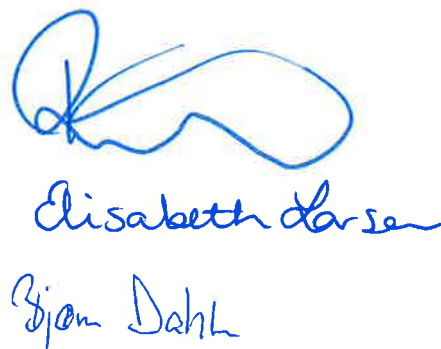 Elisabeth Larsen
Bjørn Dahl